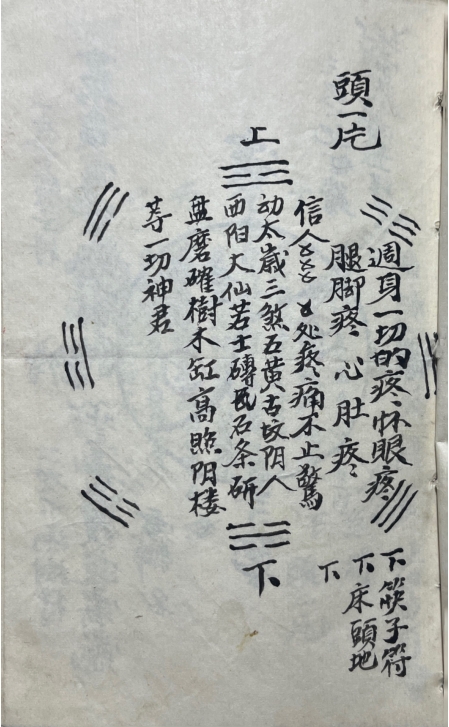 頭一片
上
週身一切的疼怀眼疼
腿脚疼 心肚疼
信人 处疼痛不止驚
动太歳三煞五黄古坟阴人
西阳大仙若士磚瓦石条斫
盘磨碓樹木缸高照阳楼
等一切神君
下
下筷子符
下床頭地
下